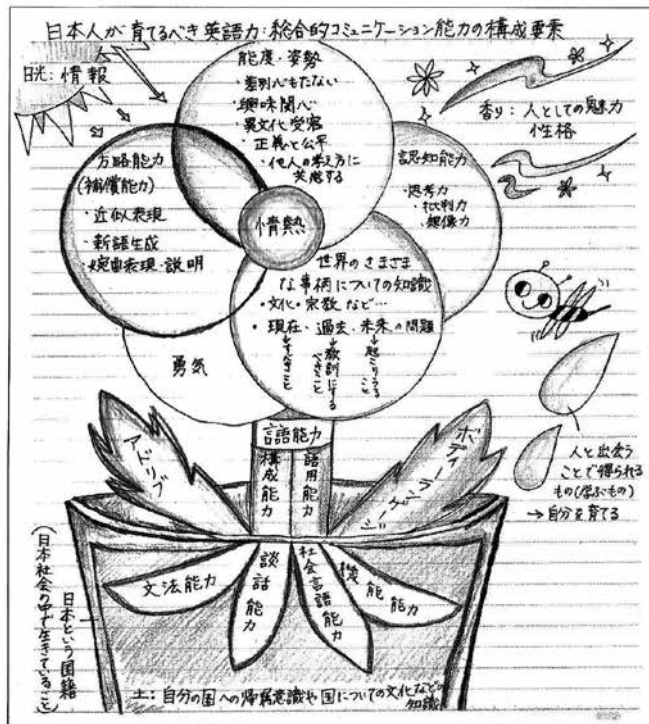 日本人が育てるべき英語力:総合的コミュニケーション能力の構成要素
日光:情報
態度・姿勢
・差別心もたない
・興味関心
・異文化受容
・正義と公平
・他人の考え方に
共感する
香り:人としての魅力
性格
方略能力
(補償能力)
・近似表現
・新語生成
・婉曲表現・説明
認知能力
・思考力
・批判力
・想像力
情熱
世界のさまざま
な事柄についての知識
・文化・宗教など…
・現在、過去、未来の問題
→すべきこと
→教訓にする
べきこと
→起こりうる
こと
勇気
言語能力
構成能力
語用能力
アドリブ
ボディーランゲージ
人と出会う
ことで得られる
もの(学ぶもの)
→自分を育てる
文法能力
談話能力
社会言語能力
機能能力
日本という国籍
(日本社会の中で生きていること)
土:自分の国への帰属意識や国についての文化などの
知識